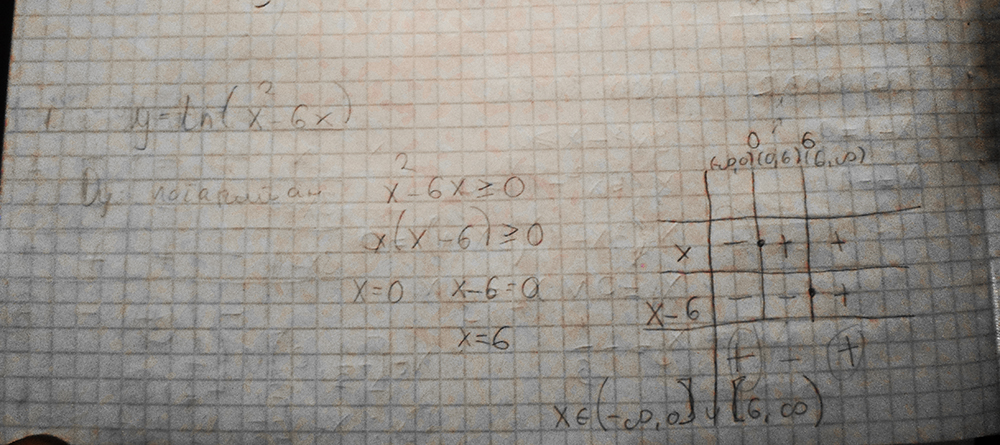 1 y=ln(x²-6x)
x²-6x≥0
x(x-6)≥0
x=0 x-6=0
x=6
0 6
(-∞,0) (0,6) (6,∞)
x - + +
x-6 - - +
+ - +
x∈(-∞,0]∪[6,∞)